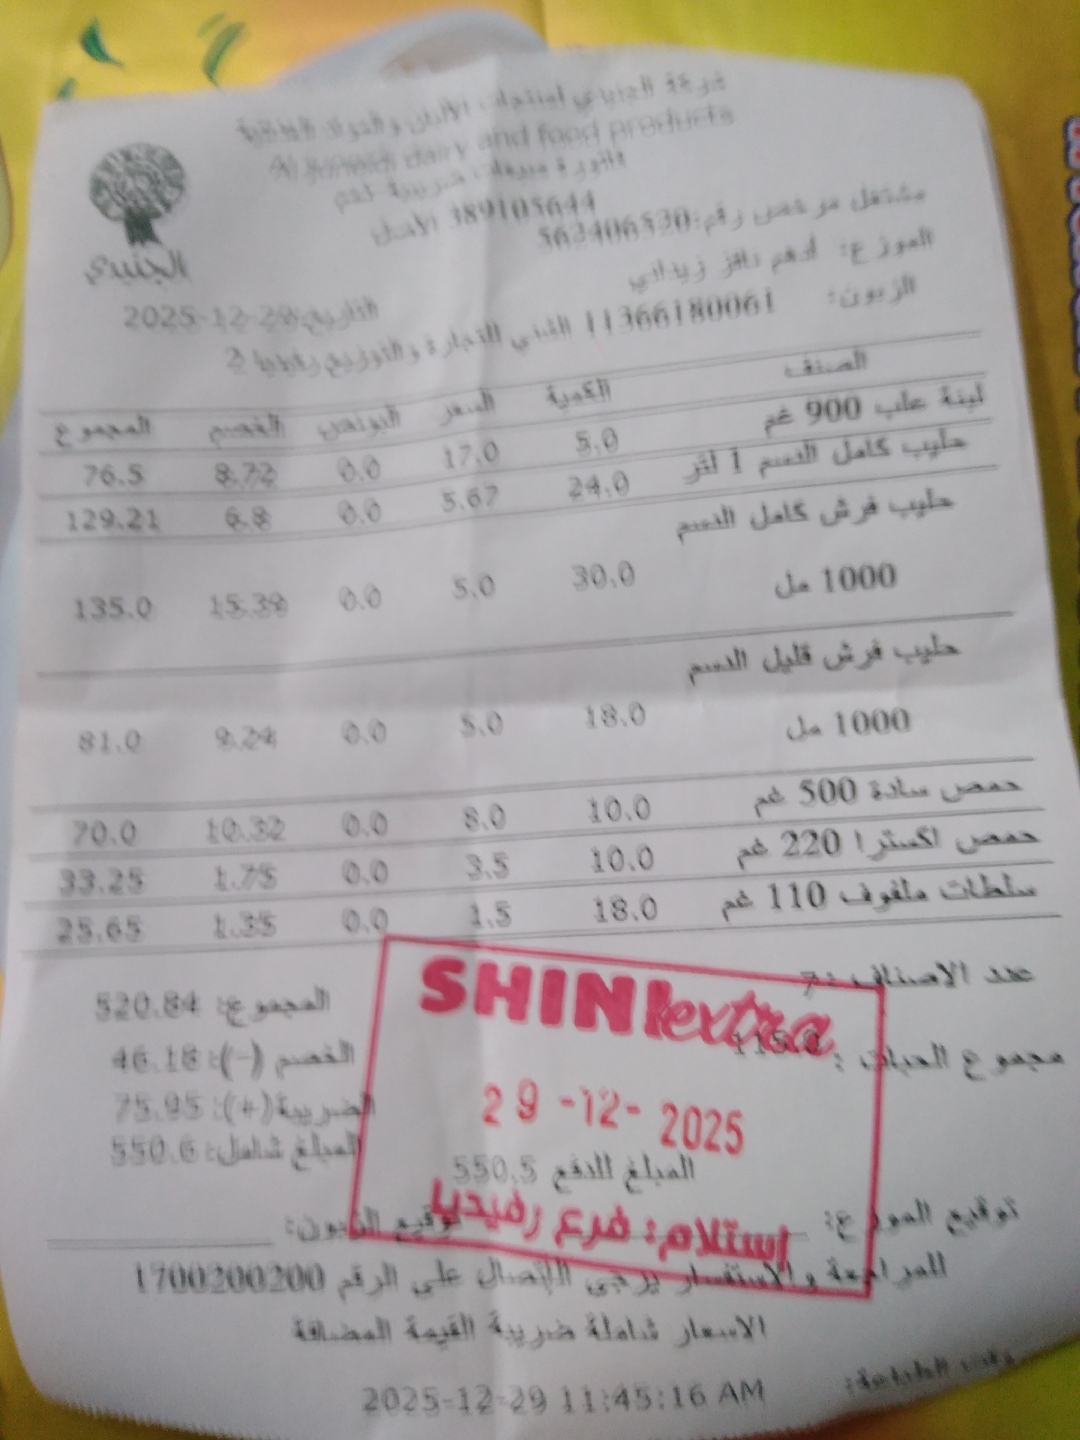 شركة الجنيدي لمنتجات الألبان والمواد الغذائية
Al Juneidi dairy and food products
فاتورة مبيعات ضريبية رقم
389105644 الأصل
مشتغل مرخص رقم: 562406520
الجنيدي
الموزع: ادهم نافز زيداني
الزبون: 11366180061 الشني للتجارة والتوزيع رفيديا 2
التاريخ: 2025-12-29
الصنف الكمية السعر البونص الخصم المجموع
لبنة علب 900 غم 5.0 17.0 0.0 8.72 76.5
حليب كامل الدسم 1 لتر 24.0 5.67 0.0 6.8 129.21
حليب فرش كامل الدسم
1000 مل 30.0 5.0 0.0 15.39 135.0
حليب فرش قليل الدسم
1000 مل 18.0 5.0 0.0 9.24 81.0
حمص سادة 500 غم 10.0 8.0 0.0 10.32 70.0
حمص اكسترا 220 غم 10.0 3.5 0.0 1.75 33.25
سلطات ملفوف 110 غم 18.0 1.5 0.0 1.35 25.65
عدد الاصناف: 7
المجموع: 520.84
مجموع الحبات: 115.0
الخصم (-): 46.18
الضريبة(+): 75.95
المبلغ شامل: 550.6
SHINI extra
29-12-2025
المبلغ للدفع 550.5
استلام: فرع رفيديا
توقيع الموزع:
توقيع الزبون:
للمراجعة والاستفسار يرجى الاتصال على الرقم 1700200200
الاسعار شاملة ضريبة القيمة المضافة
وقت الطباعة:
2025-12-29 11:45:16 AM